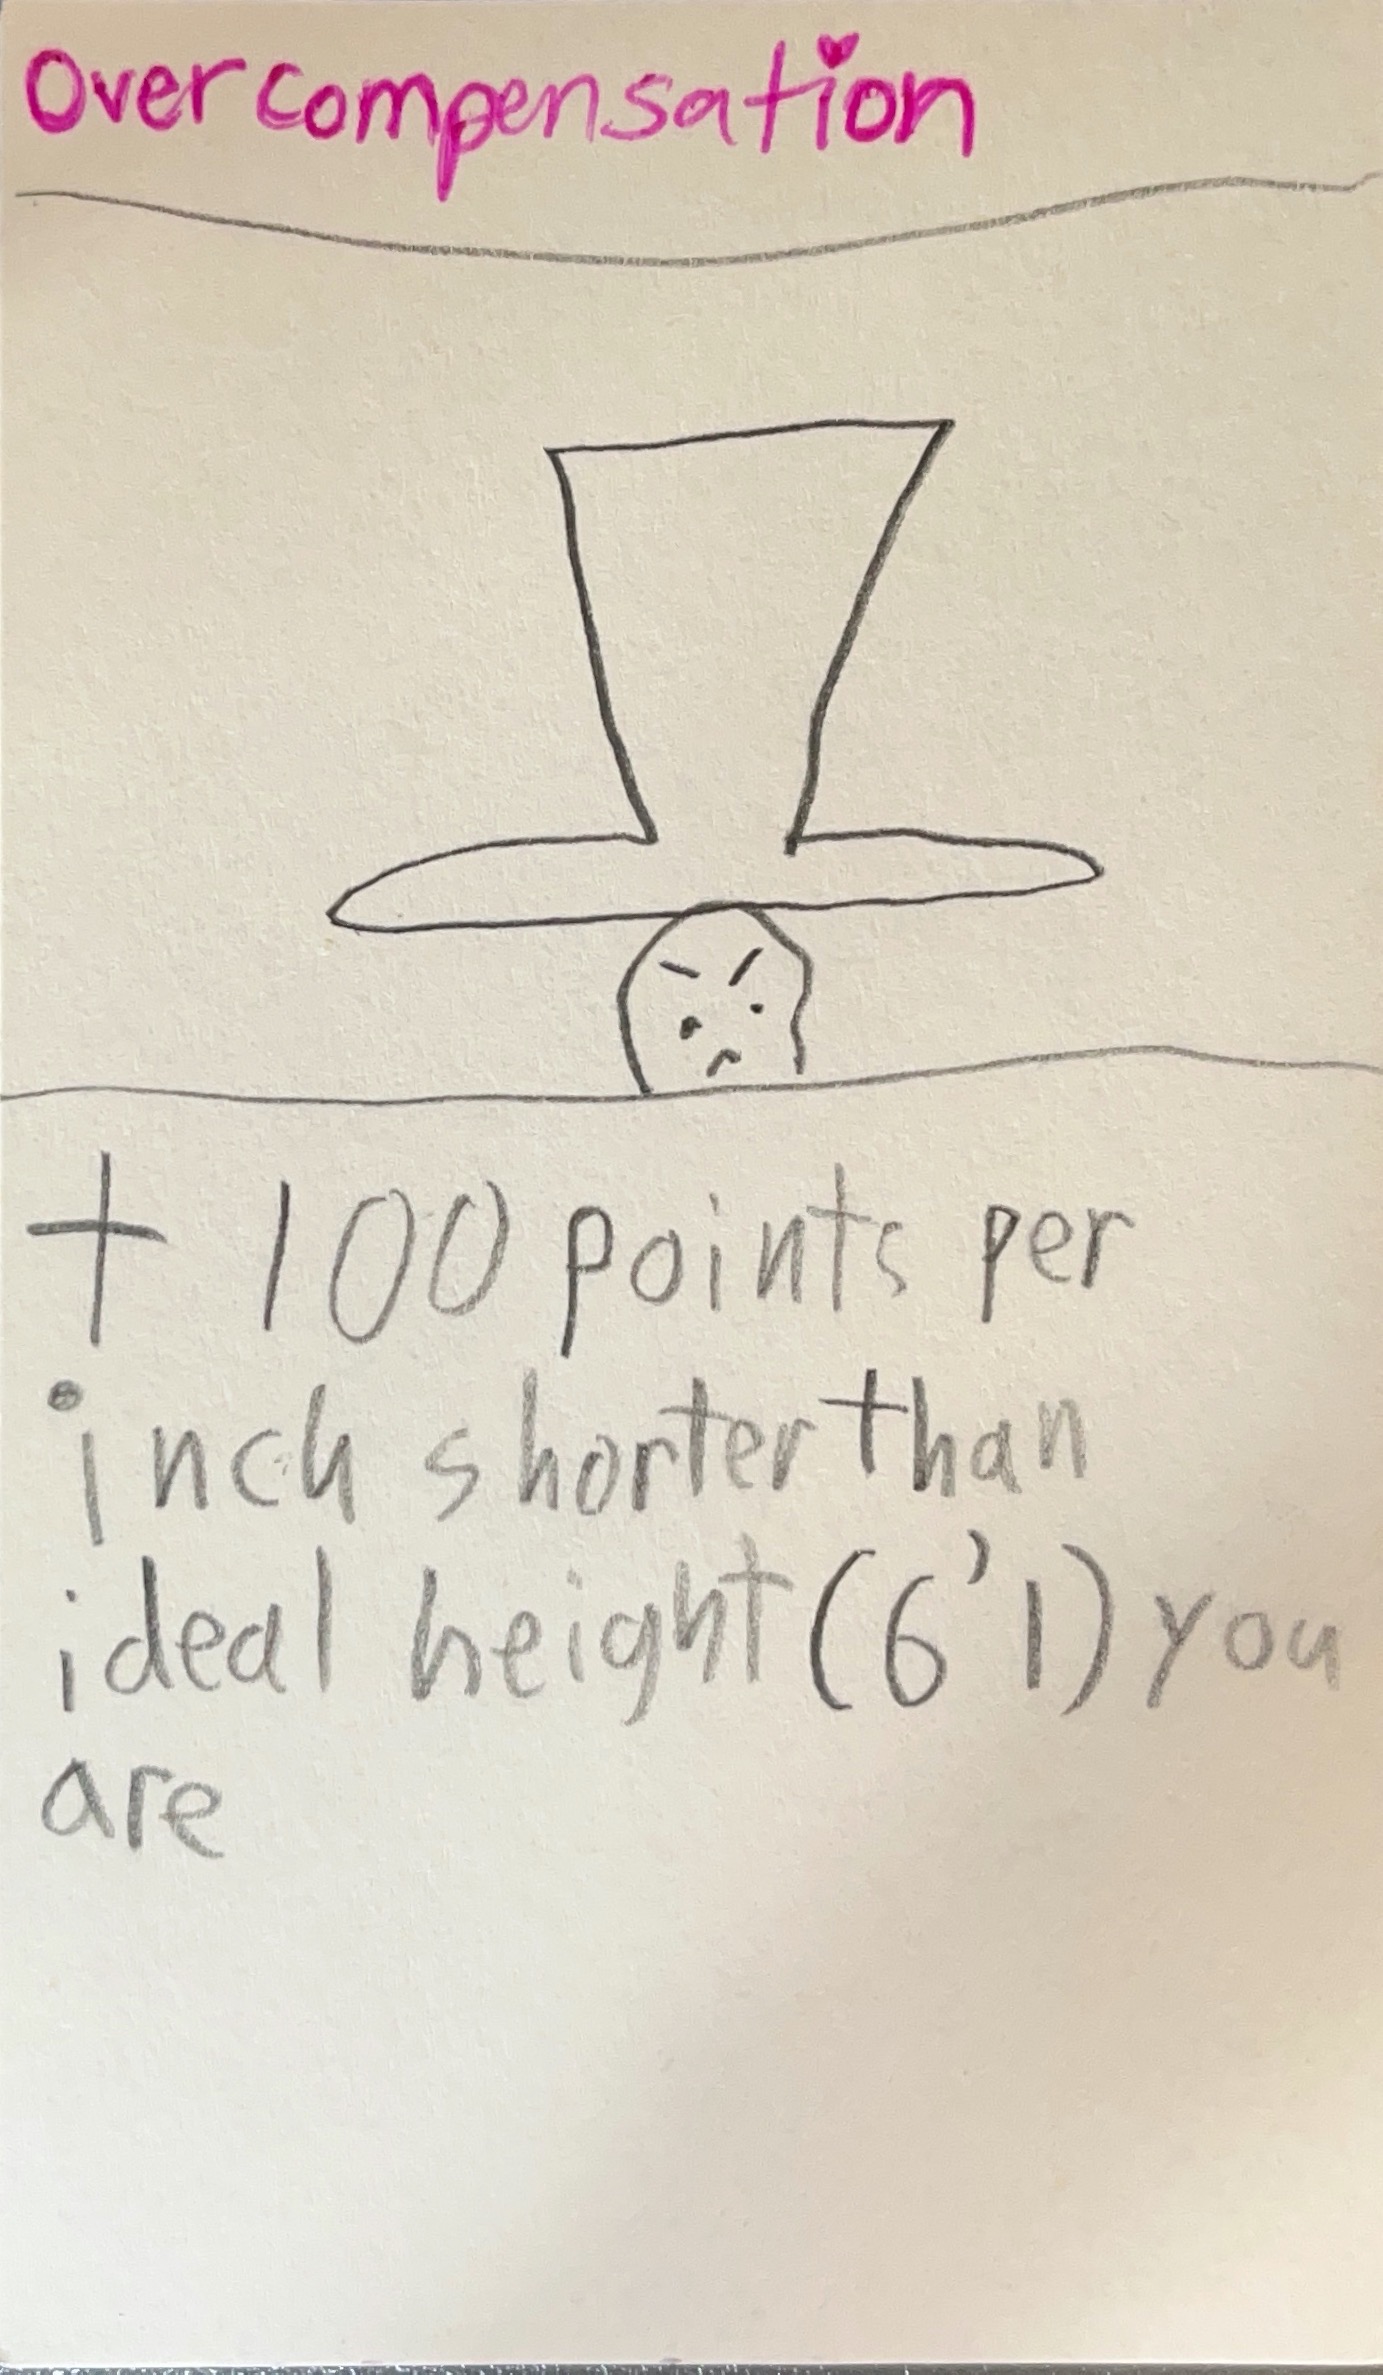 Overcompensation
+ 100 points per
inch shorter than
ideal height (6'1) you
are